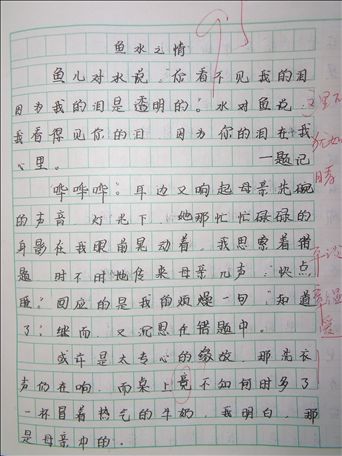 95
鱼水之情
鱼儿对水说：“你看不见我的泪
因为我的泪是透明的。”水对鱼说：
“我看得见你的泪，因为你的泪在我
心里。”
——题记
“哗哗哗”，耳边又响起母亲洗碗
的声音，灯光下，她那忙忙碌碌的
身影在我眼前晃动着，我思索着错
题，时不时地传来母亲几声：“快点
睡”，回应的是我的烦燥一句“知道
了”，继而，又沉思在错题中。
或许是太专心的缘故，那洗衣
声仍在响，而桌上竟不知何时多了
一杯冒着热气的牛奶，我明白，那
是母亲中的。